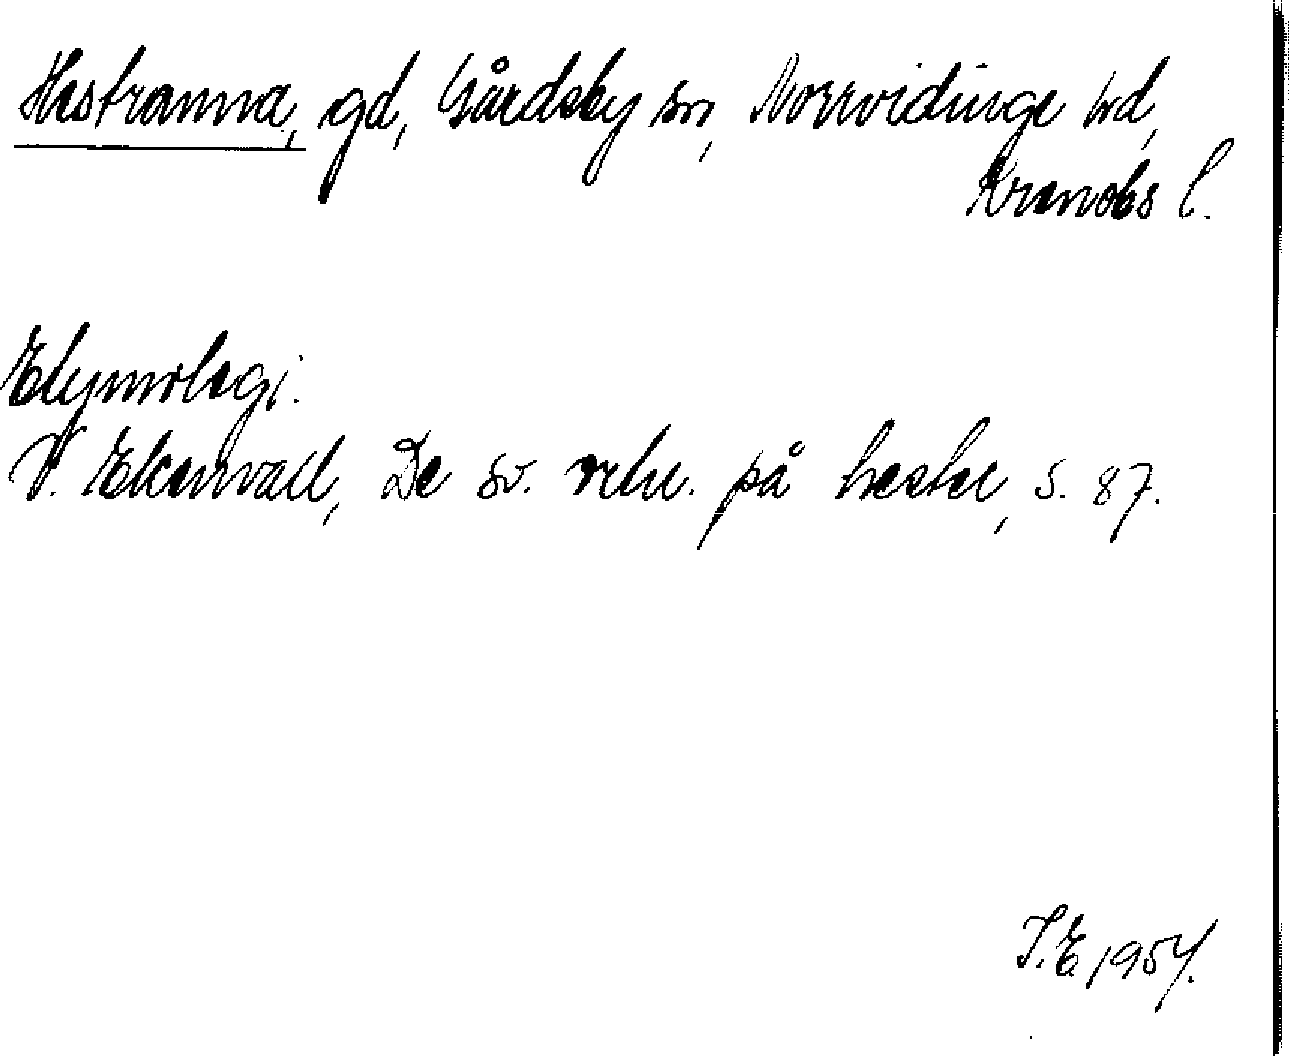 Hestranna, gd, Gårdsby sn, Norrvidinge hd,
Kronobs l.
Etymologi.
V. Ekenvall, De sv. reln. på hester, s. 87.
I.E. 1954.